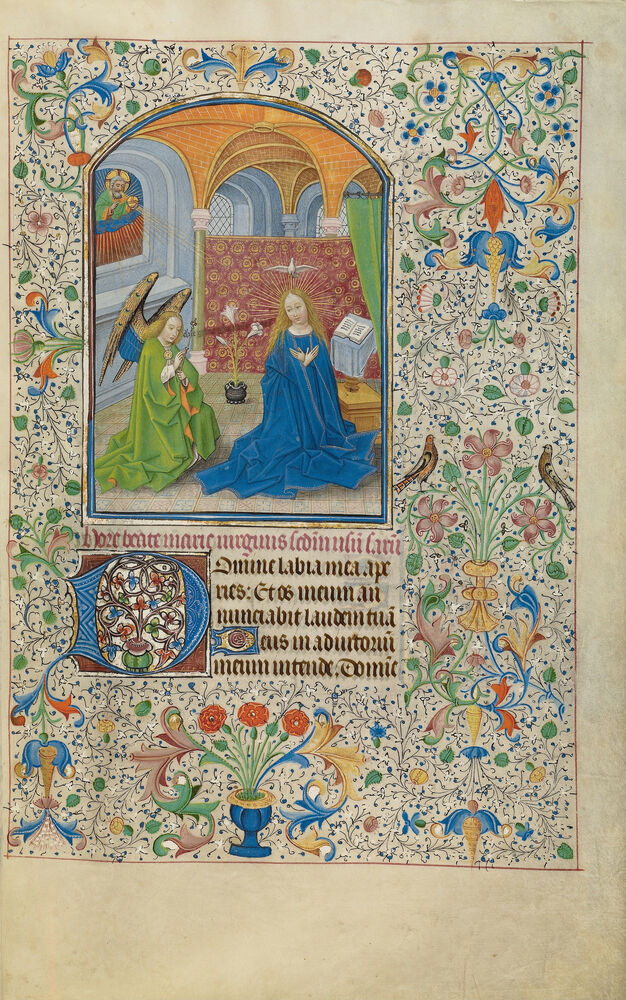 Hore beate marie virginis sedm usu saru
Domine labia mea ape
ries: Et os meum an
nunciabit laudem tuā
Deus in adiutorium
meum intende. Domīe